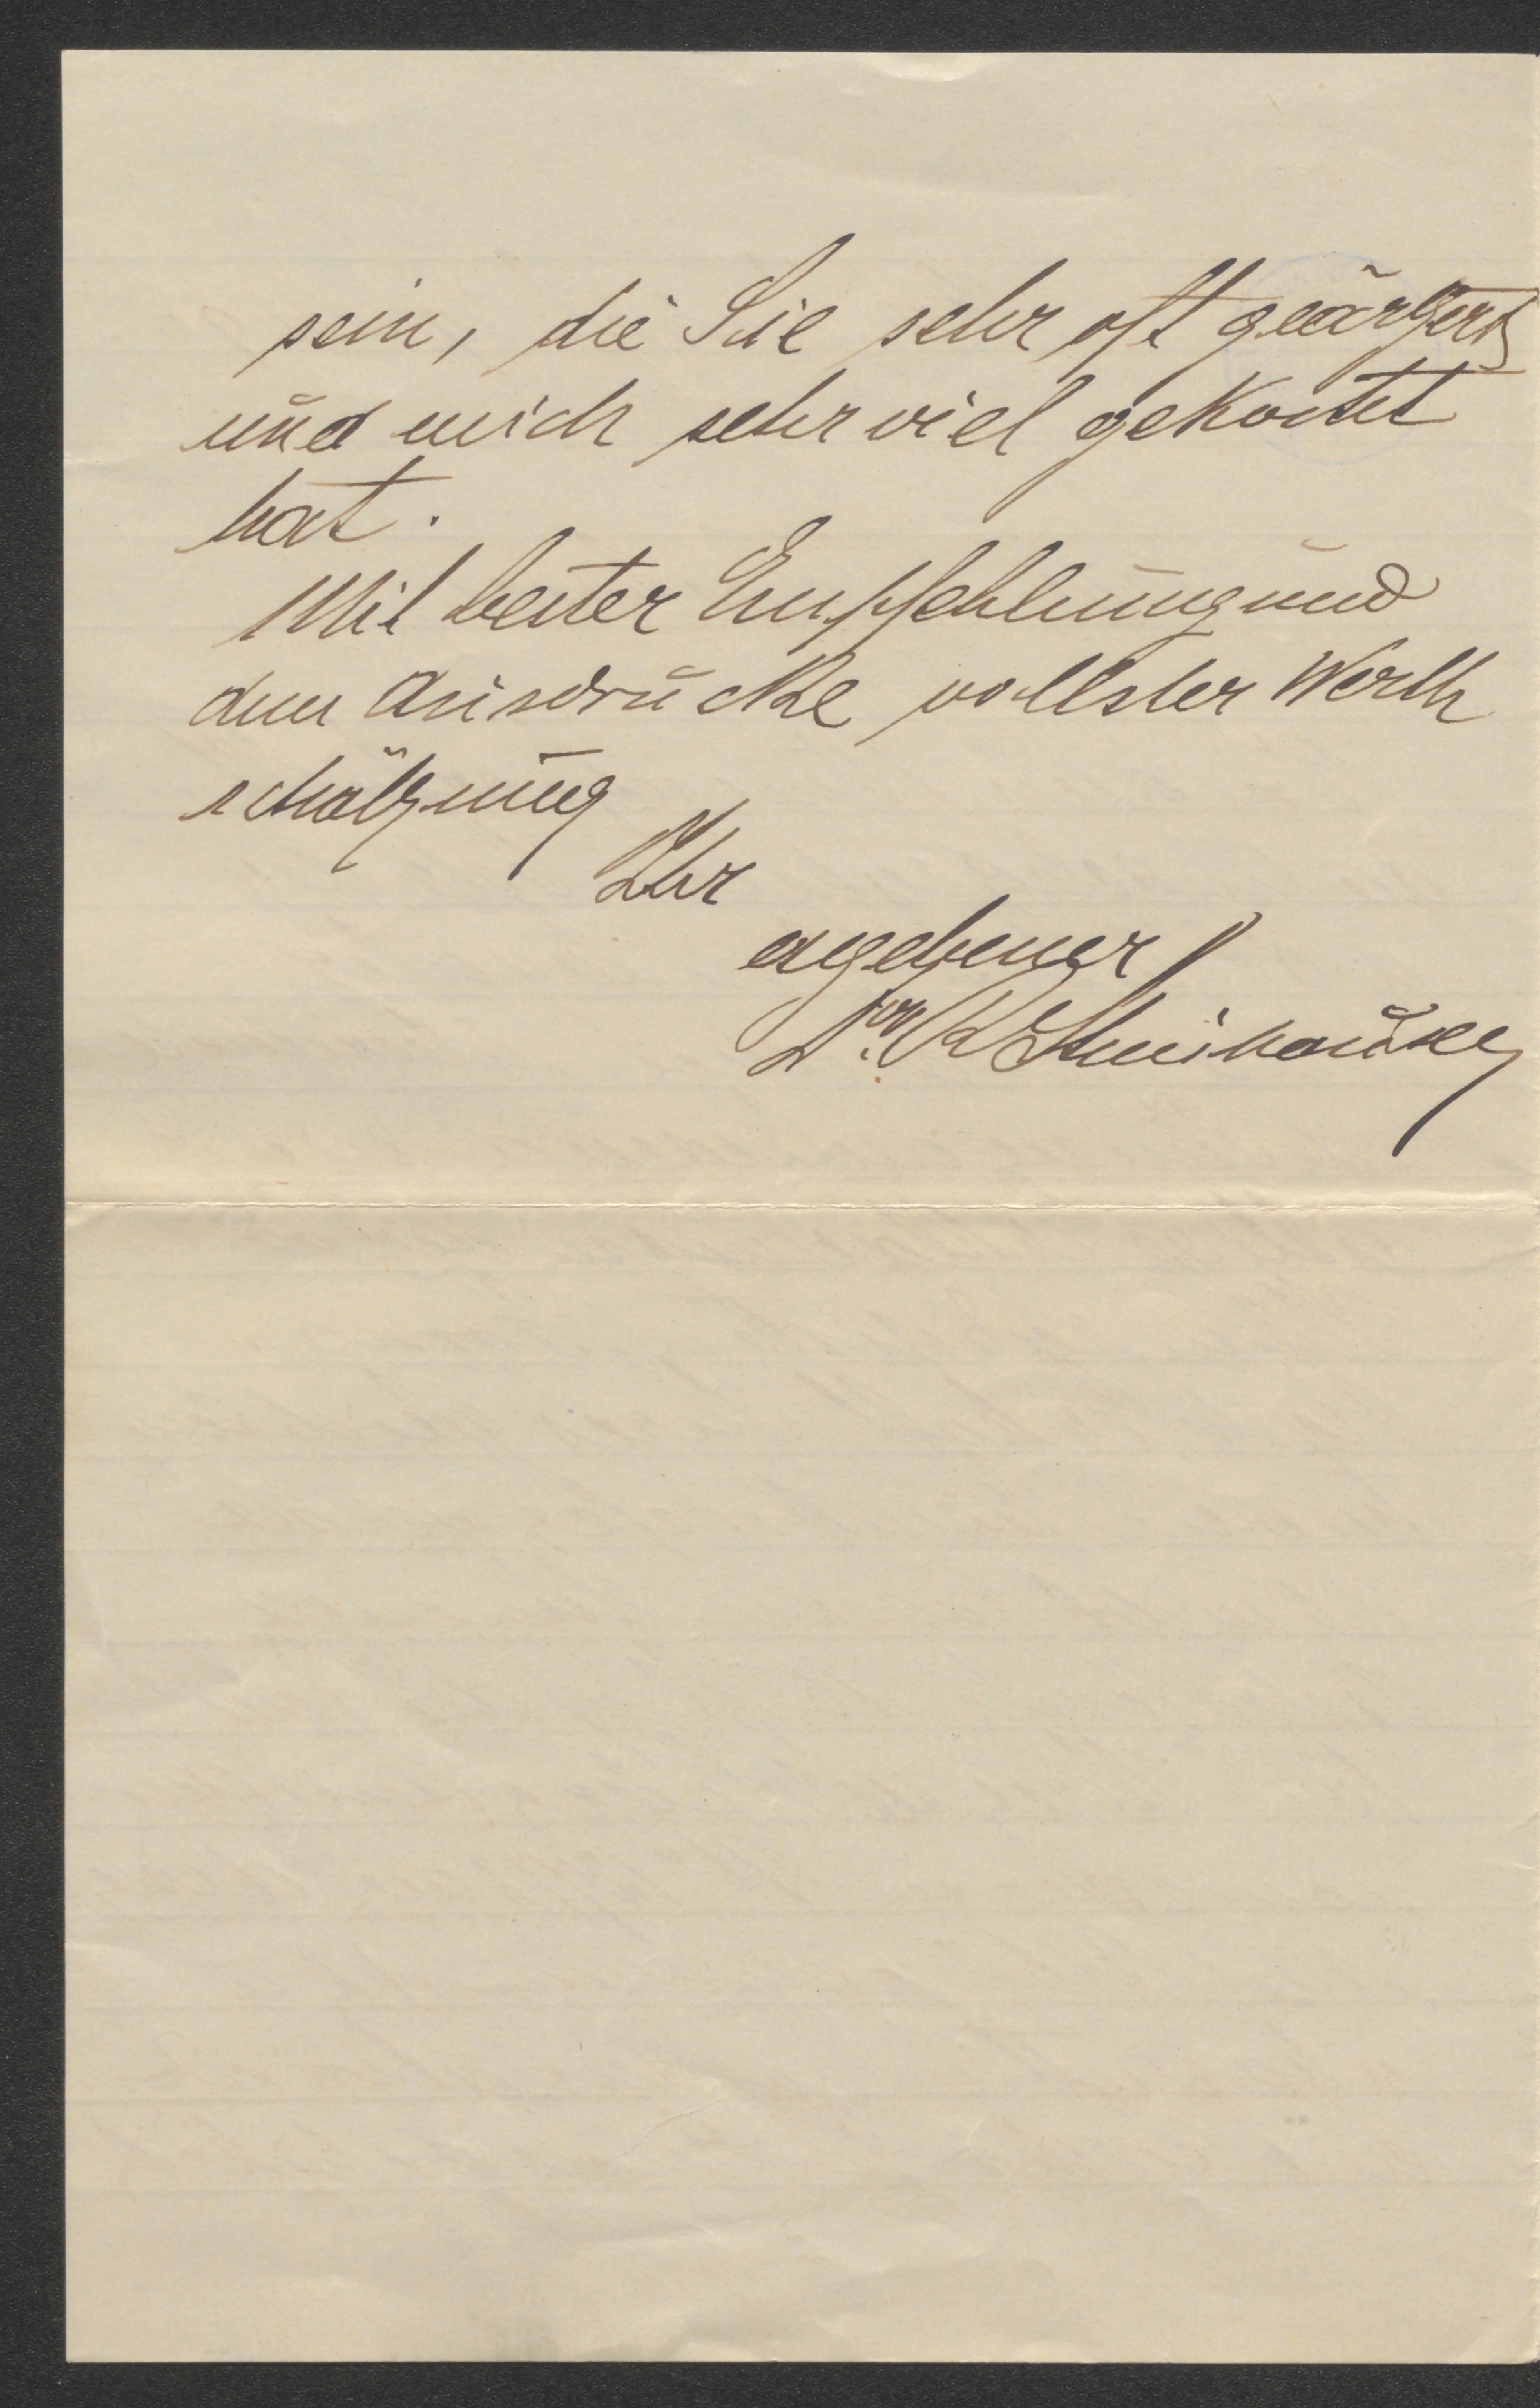 sein, die Sie sehr oft geärgert
und mich sehr viel gekostet
hat.
Mit bester Empfehlung und
dem Ausdrucke vollster Werth
schätzung
Ihr
ergebener
Dr. K